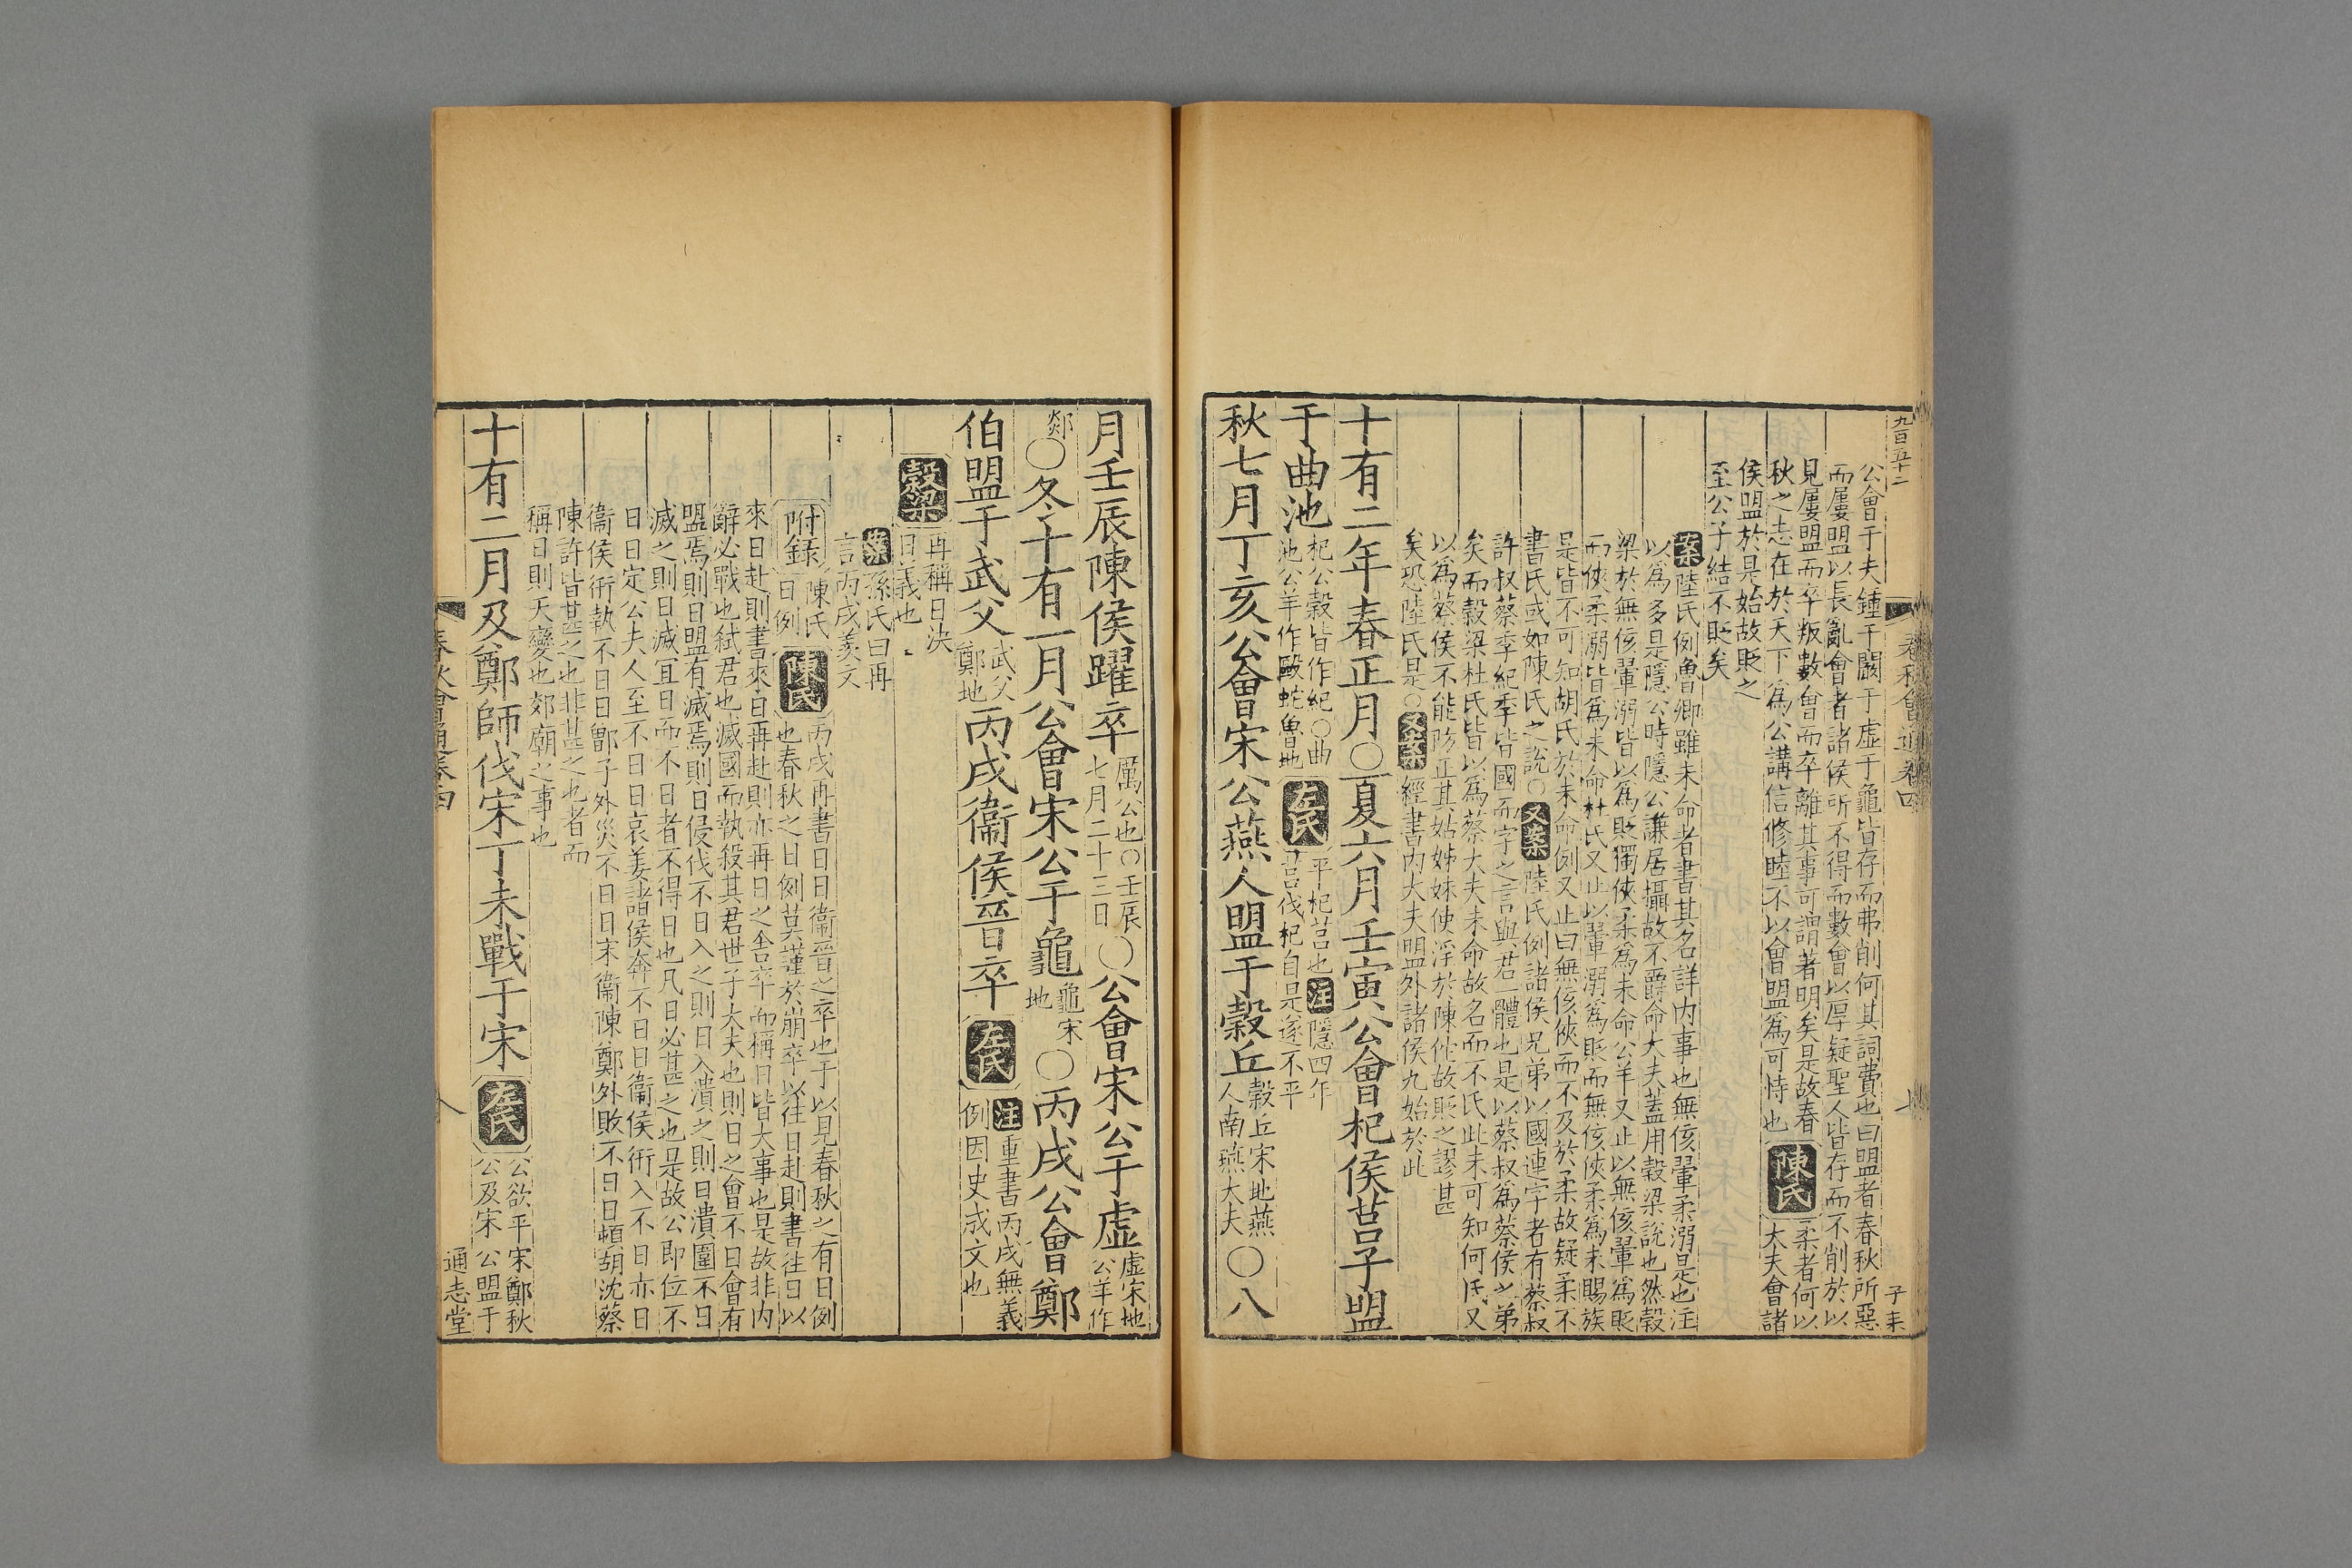 九百五十二
春秋會通卷四
七
子耒
公會于夫鍾于闞于虛于龜皆存而弗削何其詞費也曰盟者春秋所惡
而屢盟以長亂會者諸侯所不得而數會以厚疑聖人皆存而不削於以
見屢盟而卒叛數會而卒離其事可謂著明矣是故春
秋之志在於天下爲公講信修睦不以會盟爲可恃也
陳氏
柔者何以
大夫會諸
侯盟於是始故貶之
至公子結不貶矣
案陸氏例魯卿雖未命者書其名詳内事也無侅翬柔溺是也注
以爲多是隱公時隱公謙居攝故不爵命大夫蓋用穀梁說也然穀
梁於無侅翬溺皆以爲貶獨俠柔爲未命公羊又止以無侅翬爲貶
而俠柔溺皆爲未命杜氏又止以翬溺爲貶而無侅俠柔爲未賜族
是皆不可知胡氏於未命例又止曰無侅俠而不及於柔故疑柔不
書氏或如陳氏之說○又案陸氏例諸侯兄弟以國連字者有蔡叔
許叔蔡季紀季皆國而字之言與君一體也是以蔡叔爲蔡侯之弟
矣而穀梁杜氏皆以爲蔡大夫未命故名而不氏此未可知何氏又
以爲蔡侯不能防正其姑姊妹使淫於陳佗故貶之謬甚
矣恐陸氏是○又案經書内大夫盟外諸侯九始於此
十有二年春正月○夏六月壬寅公會杞侯莒子盟
于曲池
杞公穀皆作紀○曲
池公羊作毆蛇魯地
左氏
平杞莒也注隱四年
莒伐杞自是遂不平
秋七月丁亥公會宋公燕人盟于穀丘
穀丘宋地燕
人南燕大夫
○八
月壬辰陳侯躍卒
厲公也○壬辰
七月二十三日
○公會宋公于虛
虛宋地
公羊作
郯
○冬十有一月公會宋公于龜
龜宋
地
○丙戌公會鄭
伯盟于武父
武父
鄭地
丙戌衞侯晉卒
左氏
注重書丙戌無義
例因史成文也
穀梁
再稱日决
日義也
案孫氏曰再
言丙戌羡文
附録
陳氏
日例
陳氏
丙戌再書日日衞晉之卒也于以見春秋之有日例
也春秋之日例莫謹於崩卒以往日赴則書往日以
來日赴則書來日再赴則亦再日之舎卒而稱日皆大事也是故非内
辭必戰也弑君也滅國而執殺其君世子大夫也則日之會不日會有
盟焉則日盟有滅焉則日侵伐不日入之則日入潰之則日潰圍不日
滅之則日滅宜日而不日者不得日也凡日必甚之也是故公即位不
日日定公夫人至不日日哀姜諸侯奔不日日衞侯衎入不日亦日
衞侯衎執不日日鄫子外災不日日宋衞陳鄭外敗不日日頓胡沈蔡
陳許皆甚之也非甚之也者而
稱日則天變也郊廟之事也
十有二月及鄭師伐宋丁未戰于宋
左氏
公欲平宋鄭秋
公及宋公盟于
春秋會通卷四
八
通志堂